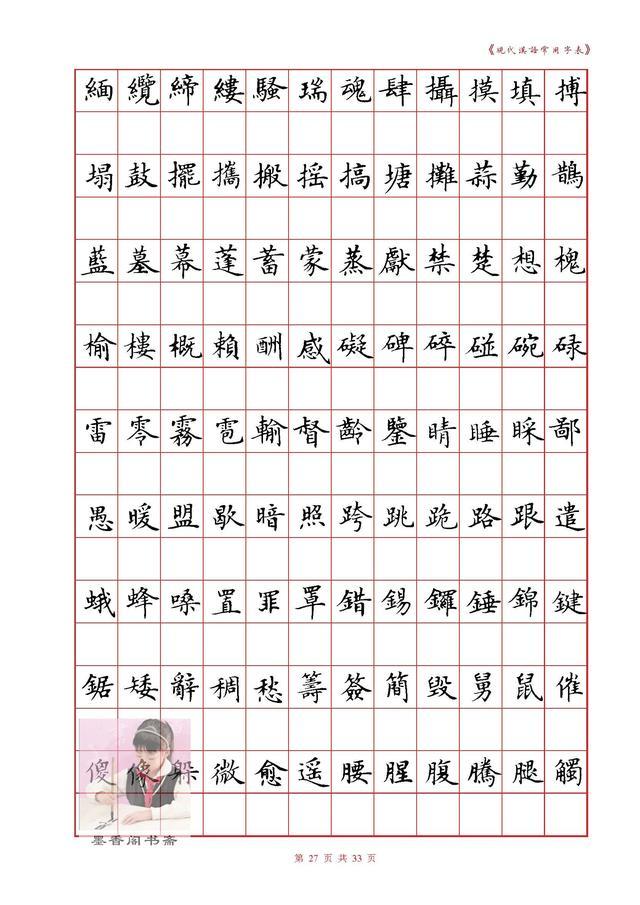 《現代漢語常用字表》
緬纜締縷騷瑞魂肆攝摸填搏
塌鼓擺攜搬摇搞塘攤蒜勤鵲
藍墓幕蓬蓄蒙蒸獻禁楚想槐
榆樓概賴酬感礙碑碎碰碗碌
雷零霧雹輸督齡鑒睛睡睬鄙
愚暖盟歇暗照跨跳跪路跟遣
蛾蜂嗓置罪罩錯錫鑼錘錦鍵
鋸矮辭稠愁籌簽簡毁舅鼠催
傻像躲微愈遥腰腥腹騰腿觸
墨香阁书斋
第 27 页 共 33 页